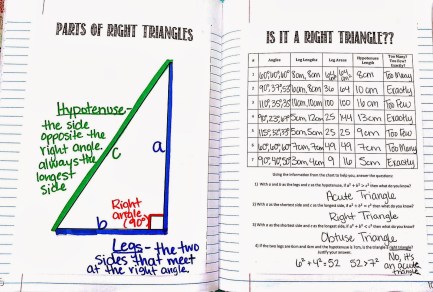 PARTS OF RIGHT TRIANGLES
Hypotenuse-
the side
opposite the
right angle.
always the
longest
side
c
a
b
Right
angle
(90°)
Legs - the two
sides that meet
at the right angle.
IS IT A RIGHT TRIANGLE??
# Angles Leg Lengths Leg Areas Hypotenuse Length Too Many? Too Few? Exactly?
1 60°,60°,60° 8cm, 8cm 8cm Too Many
2 90°,37°,53° 36 64 10cm Exactly
3 110°,35°,35° 10cm,10cm 100 100 16cm Too Few
4 5cm,12cm 25 144 13cm Exactly
5 5cm,5cm 25 25 9cm Too Few
6 60°,60°,60° 7cm,7cm 49 49 7cm Too Many
7 3cm,4cm 9 16 5cm Exactly
Using the information from the chart to help you, answer the questions:
1) With a and b as the legs and c as the hypotenuse, if a² + b² > c² then what do you know?
Acute Triangle
2) With a as the shortest side and c as the longest side, if a² + b² = c² then what do you know?
Right Triangle
3) With a as the shortest side and c as the longest side, if a² + b² < c² then what do you know?
Obtuse Triangle
4) If the two legs are 6cm and 4cm and the hypotenuse is 7cm, is the triangle a right triangle?
Justify your answer.
6² + 4² = 52 52 > 7²
No, it's
an acute
triangle